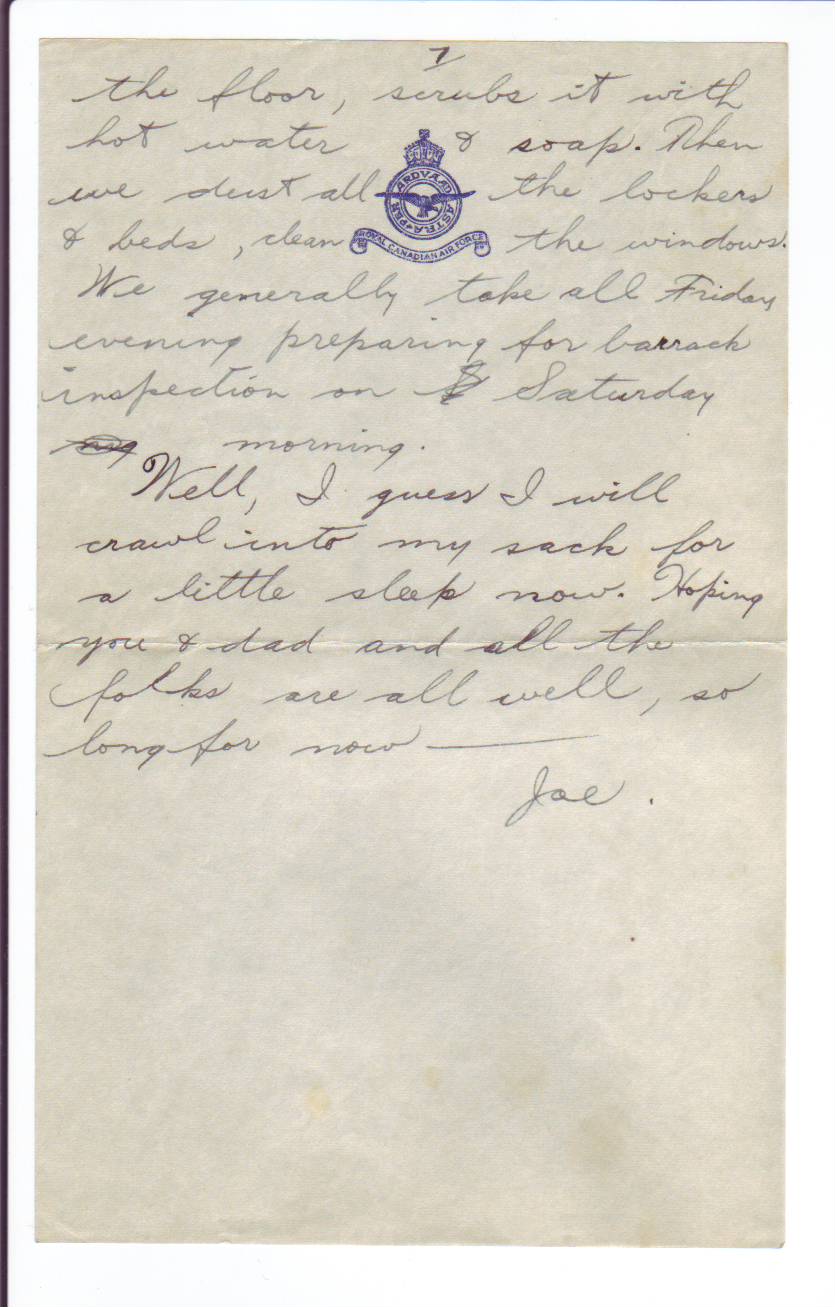 7
the floor, scrubs it with
hot water & soap. Then
we dust all the lockers
& beds, clean the windows.
PER ARDVA AD ASTRA
ROYAL CANADIAN AIR FORCE
We generally take all Friday
evening preparing for barrack
inspection on Saturday
morning.
Well, I guess I will
crawl into my sack for
a little sleep now. Hoping
you & dad and all the
folks are all well, so
long for now —
Joe.